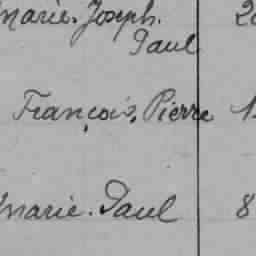 Marie. Joseph.
Paul
François, Pierre
Marie. Paul 8